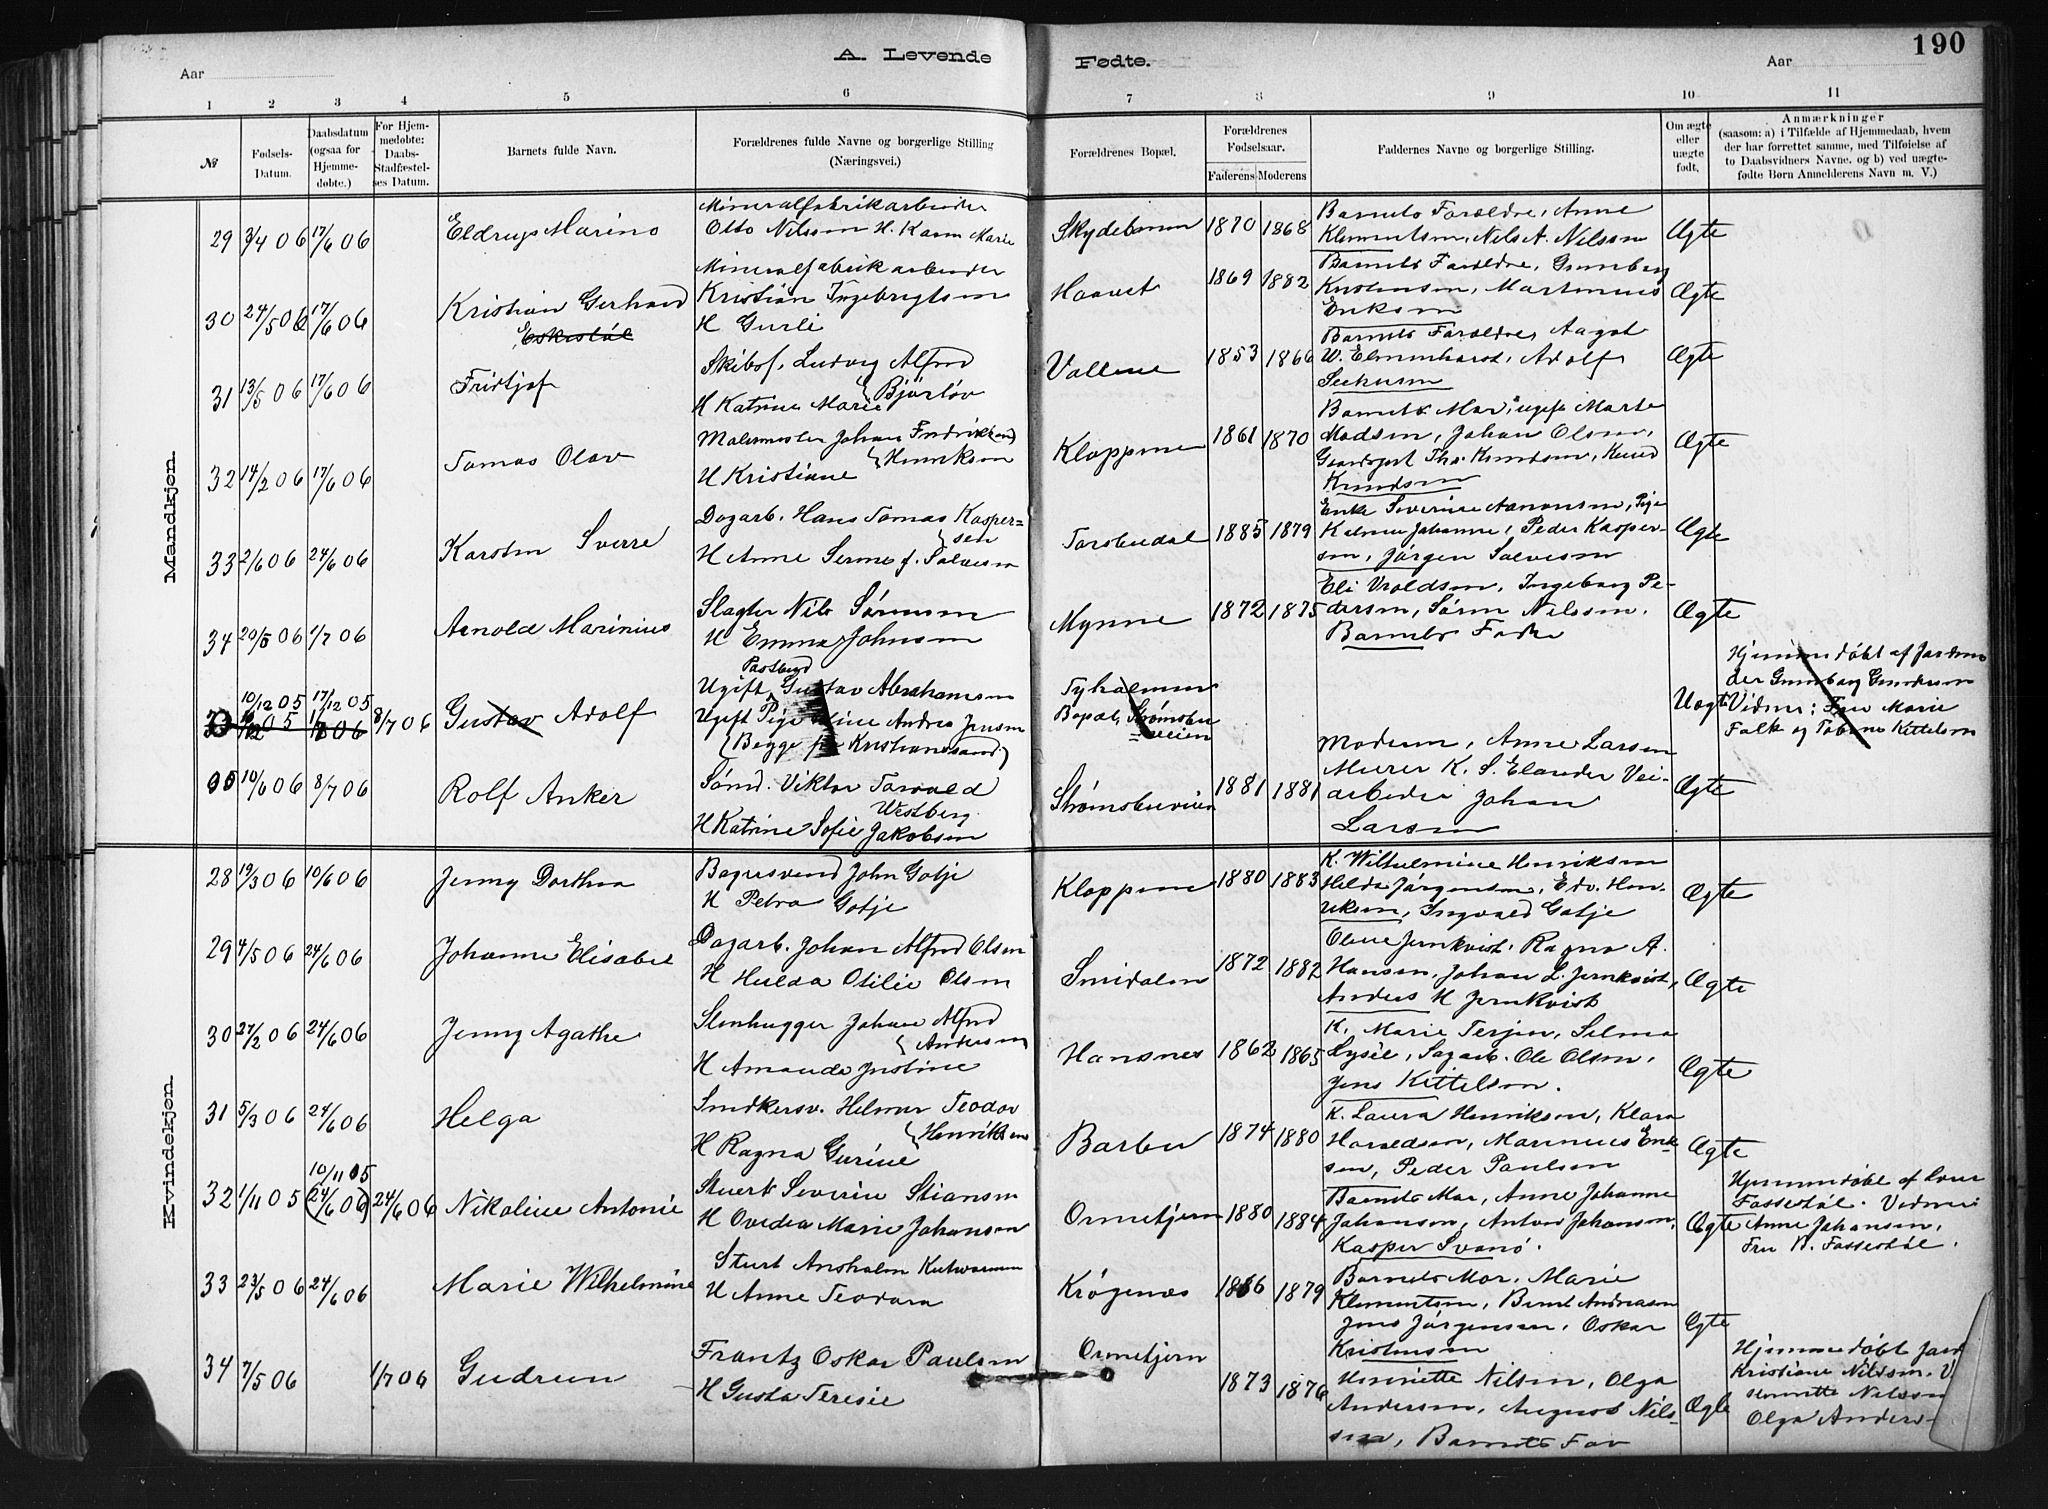 190
A. Levende Fødte.
Aar
Aar
1 2 3 4 5 6 7 8 9 10 11
№
Fødsels-Datum.
Daabsdatum (ogsaa for Hjemme-døbte.)
For Hjem-medøbte: Daabs-Stadfæstel-ses Datum.
Barnets fulde Navn.
Forældrenes fulde Navne og borgerlige Stilling (Næringsvei.)
Forældrenes Bopæl.
Forældrenes Fødselsaar.
Faderens Moderens
Faddernes Navne og borgerlige Stilling.
Om ægte eller uægte født.
Anmærkninger
(saasom: a) i Tilfælde af Hjemmedaab, hvem
der har forrettet samme, med Tilføielse af
to Daabsvidners Navne. og b) ved uægte-
fødte Børn Anmelderens Navn m. V.)
Mandkjøn.
29 3/4 06 17/6 06 Eldrup Marino
Mineralfabrikarbeider
Otto Nilsson H. Karen Marie
1870 1868
Barnets Forældre, Anne
Klementsen, Nils A. Nilsson
Ægte
30 24/5 06 17/6 06 Kristian Gerhard
Mineralfabrikarbeider
Kristian Ingebrigtsen
H Gurli
Haavet 1869 1882
Barnets Forældre, Gunnborg
Kristensen, Martinius
Eriksen
Ægte
31 13/5 06 17/6 06 Fridtjof
Skibsf. Ludvig Alfred
Bjørløv
H Katrine Marie
Vollene 1853 1866
Barnets Forældre, Aagot
Adolf
Ægte
32 14/2 06 17/6 06 Tomas Olav
Malermester Johan Fredrik
Henriksen
H Kristiane
Kloppene 1861 1870
Barnets Mor, ugift Marte
Madsen, Johan Olsen,
Gaardsgut Ths. Knudsen, Knud
Knudsen
Ægte
33 2/6 06 24/6 06 Karsten Sverre
Dagarb. Hans Tomas Kasper-
sen
H Anne Serine f. Salvesen
Torsbudal 1885 1879
Enke Severine Aanonsen, Pige
Johanne, Peder Kasper-
sen, Jørgen Salvesen
Ægte
34 20/5 06 1/7 06 Arnold Marinius
Slagter Nils Sørensen
H Emma Johnsen
Mynne 1872 1875
Eli Vroldsen, Ingeborg Pe-
dersen, Søren Nilssen.
Barnets Fader
Ægte
10/12 05 17/12 05 8/7 06 Gustav Adolf
Postbud
Ugift Gustav Abrahamsen
Ugift Pige Andrea Jensen
(Begge fra Kristianssand)
Tyholmen
Bopæl, Strømsbu
veien
Uægte
Hjemmedøbt af Jordmo
der Gunnborg Gundersen
Vidner: Fru Marie
Falk og Tobine Kittelsen
35 10/6 06 8/7 06 Rolf Anker
Sømd. Viktor Torvald
Westberg
H Katrine Sofie Jakobsen
Strømsbuveien 1881 1881
Moderen, Anne Larsen
Murer K. S. Elander Vei-
arbeider Johan
Larsen
Ægte
Kvindekjøn.
28 19/3 06 10/6 06 Jenny Dorthea
Bagersvend John Gotje
H Petra Gotje
Kloppene 1880 1883
K. Wilhelmine Henriksen
Hilda Jørgensen, Edv. Hen-
riksen, Ingvald Gotje
Ægte
29 4/5 06 24/6 06 Johanne Elisabet
Dagarb. Johan Alfred Olsen
H Hulda Otilie Olsen
Smidalen 1872 1882
Oline Jernkvist, Ragna A.
Hansen, Johan L. Jernkvist,
Anders H Jernkvist
Ægte
30 27/2 06 24/6 06 Jenny Agathe
Stenhugger Johan Alfred
Andersen
H Amanda Justine
Hansnes 1862 1865
K. Marie Terjesen, Selma
Lysèe, Sagarb. Ole Olsen,
Jens Kittelsen.
Ægte
31 5/3 06 24/6 06 Helga
Snedkersv. Helmer Teodor
Henriksen
H Ragna Gurine
Barbu 1874 1880
K. Laura Henriksen, Klara
Haraldsen, Marinius Erik-
sen, Peder Paulsen
Ægte
32 1/11 05 10/11 05 (24/6 06) 24/6 06 Nikoline Antonie
Stuert Severin Stiansen
H Ovedia Marie Johansen
Ormetjern 1880 1884
Barnets Mor, Anne Johanne
Johansen, Anton Johansen,
Kasper Svanø.
Ægte
Hjemmedøbt af
Fossestøl. Vidner:
Anne Johansen,
Fru B. Fossestøl.
33 23/5 06 24/6 06 Marie Wilhelmine
Stuert Ansholm
H Anne Teodora
Krøgenæs 1866 1879
Barnets Mor, Marie
Klementsen, Bernt Andreasen
Jens Jørgensen, Oskar
Kristensen
Ægte
34 7/5 06 1/7 06 Gudrun
Frantz Oskar Paulsen
H Gusta Teresie
Ormetjern 1873 1876
Henriette Nilsen, Olga
Andersen, August Nils-
sen, Barnets Far
Ægte
Hjemmedøbt
Kristiane Nilssen. V
Henriette Nilssen
Olga Anders-